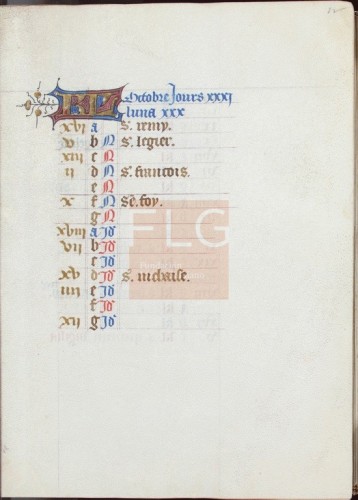 KL Octobre Jours xxxi
luna xxx
xvi a S. remy.
v b N S. legier.
xiii c N
ii d N S. francois.
e N
x f N Se. foy.
g N
xviii a Id
vii b Id
c Id
xv d Id S. nichaise.
iiii e Id
f Id
xii g Id
FLG